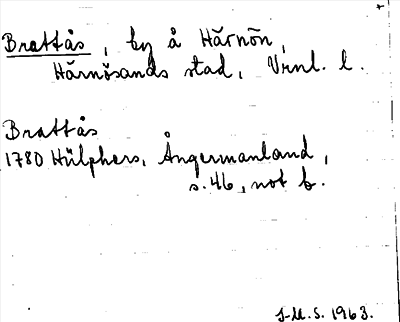 Brattås, by å Härnön,
Härnösands stad, Vrnl. l.
Brattås
1780 Hülphers, Ångermanland,
s. 46, not b.
J-M.S. 1963.